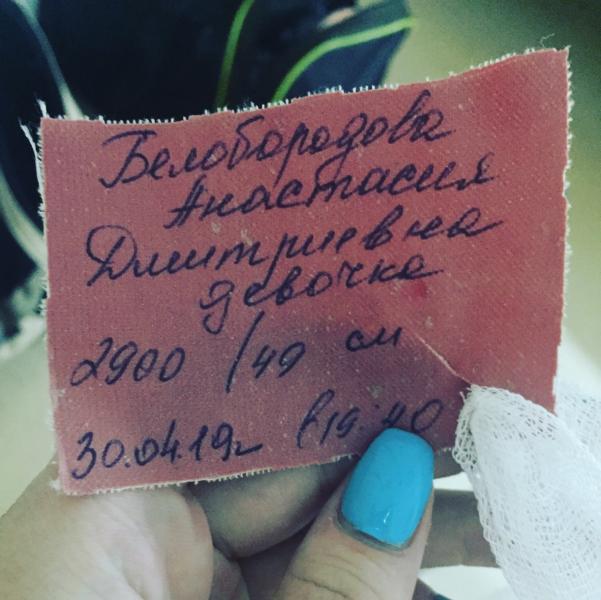 Белобородова
Анастасия
Дмитриевна
девочка
2900 / 49 см
30.04.19г в 19:40